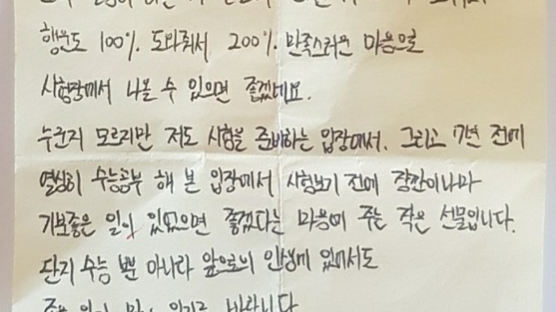 행운도 100% 도와줘서 200% 만족스러운 마음으로
시험장에서 나올 수 있으면 좋겠네요.
누군지 모르지만 저도 시험을 준비하는 입장에서. 그리고 7년 전에
열심히 수능공부 해 본 입장에서 시험보기 전에 잠깐이나마
기분좋은 일이 있었으면 좋겠다는 마음에 주는 작은 선물입니다.
단지 수능 뿐 아니라 앞으로의 인생에 있어서도
바랍니다